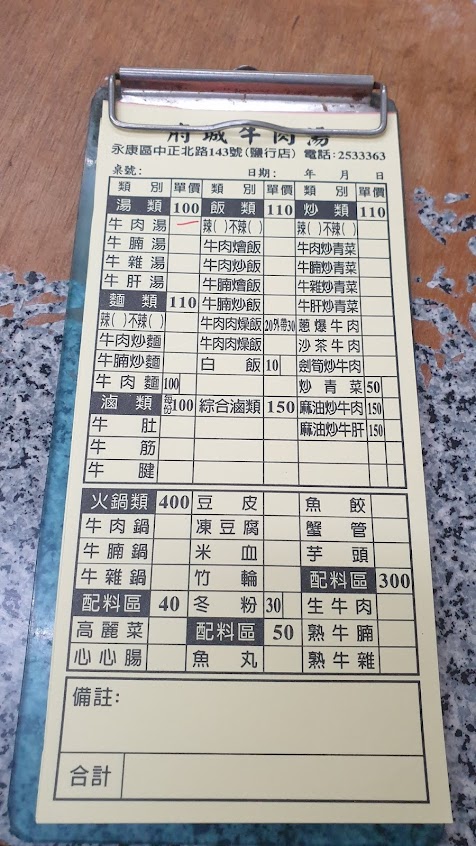 府城牛肉湯
永康區中正北路143號(鹽行店) 電話:2533363
桌號: 日期: 年 月 日
類別 單價 類別 單價 類別 單價
湯類 100 飯類 110 炒類 110
牛肉湯 辣( )不辣( ) 辣( )不辣( )
牛腩湯 牛肉燴飯 牛肉炒青菜
牛雜湯 牛肉炒飯 牛腩炒青菜
牛肝湯 牛腩燴飯 牛雜炒青菜
麵類 110 牛腩炒飯 牛肝炒青菜
辣( )不辣( ) 牛肉肉燥飯 20外帶30 蔥爆牛肉
牛肉炒麵 牛肉肉燥飯 沙茶牛肉
牛腩炒麵 白飯 10 劍筍炒牛肉
牛肉麵 100 炒青菜 50
滷類 每份100 綜合滷類 150 麻油炒牛肉 150
牛肚 麻油炒牛肝 150
牛筋
牛腱
火鍋類 400 豆皮 魚餃
牛肉鍋 凍豆腐 蟹管
牛腩鍋 米血 芋頭
牛雜鍋 竹輪 配料區 300
配料區 40 冬粉 30 生牛肉
高麗菜 配料區 50 熟牛腩
心心腸 魚丸 熟牛雜
備註:
合計